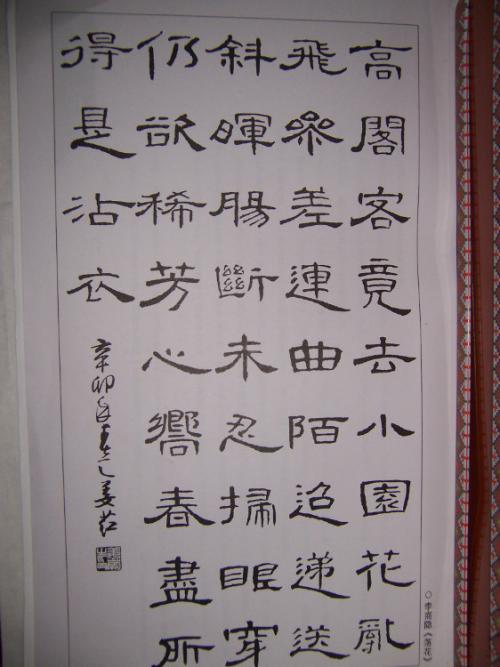 高閣客竟去小園花亂
飛參差連曲陌迢遞送
斜暉腸斷未忍掃眼穿
仍欲稀芳心嚮春盡所
得是沾衣
辛卯年春
○李商隐《落花》